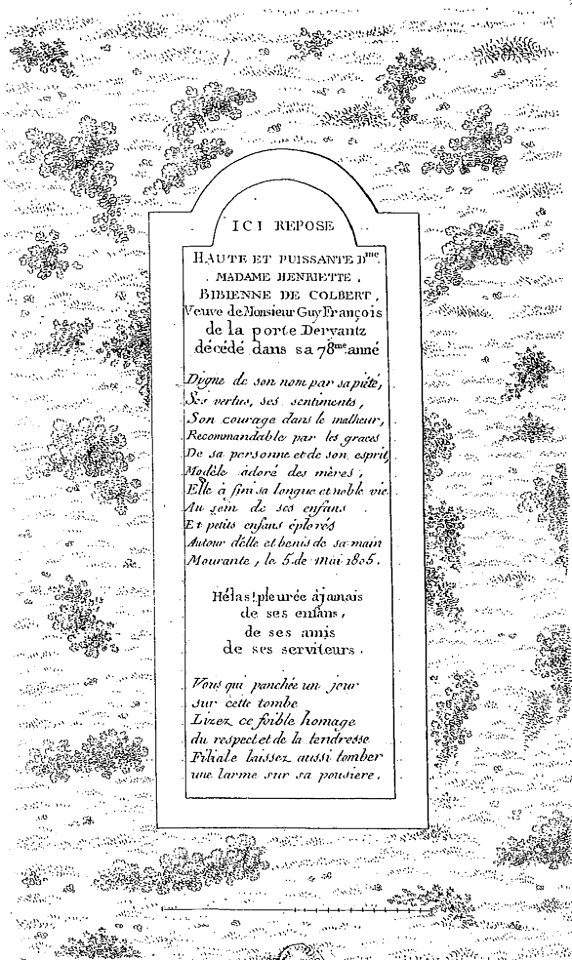 ICI REPOSE
HAUTE ET PUISSANTE Dme.
MADAME HENRIETTE,
BIBIENNE DE COLBERT,
Veuve de Monsieur Guy François
de la porte Dervantz
décédé dans sa 78me. anné
Digne de son nom par sa piété,
Ses vertus, ses sentiments,
Son courage dans le malheur,
Recommandable par les graces
De sa personne et de son esprit,
Modèle adoré des mères,
Elle à fini sa longue et noble vie
Au sein de ses enfans
Et petits enfans éplorés
Autour d'elle et benis de sa main
Mourante, le 5 de Mai 1805.
Hélas! pleurée àjamais
de ses enfans,
de ses amis
de ses serviteurs.
Vous qui panchée un jour
sur cette tombe
Lizez ce foible homage
du respect et de la tendresse
Filiale laissez aussi tomber
une larme sur sa pousiere.